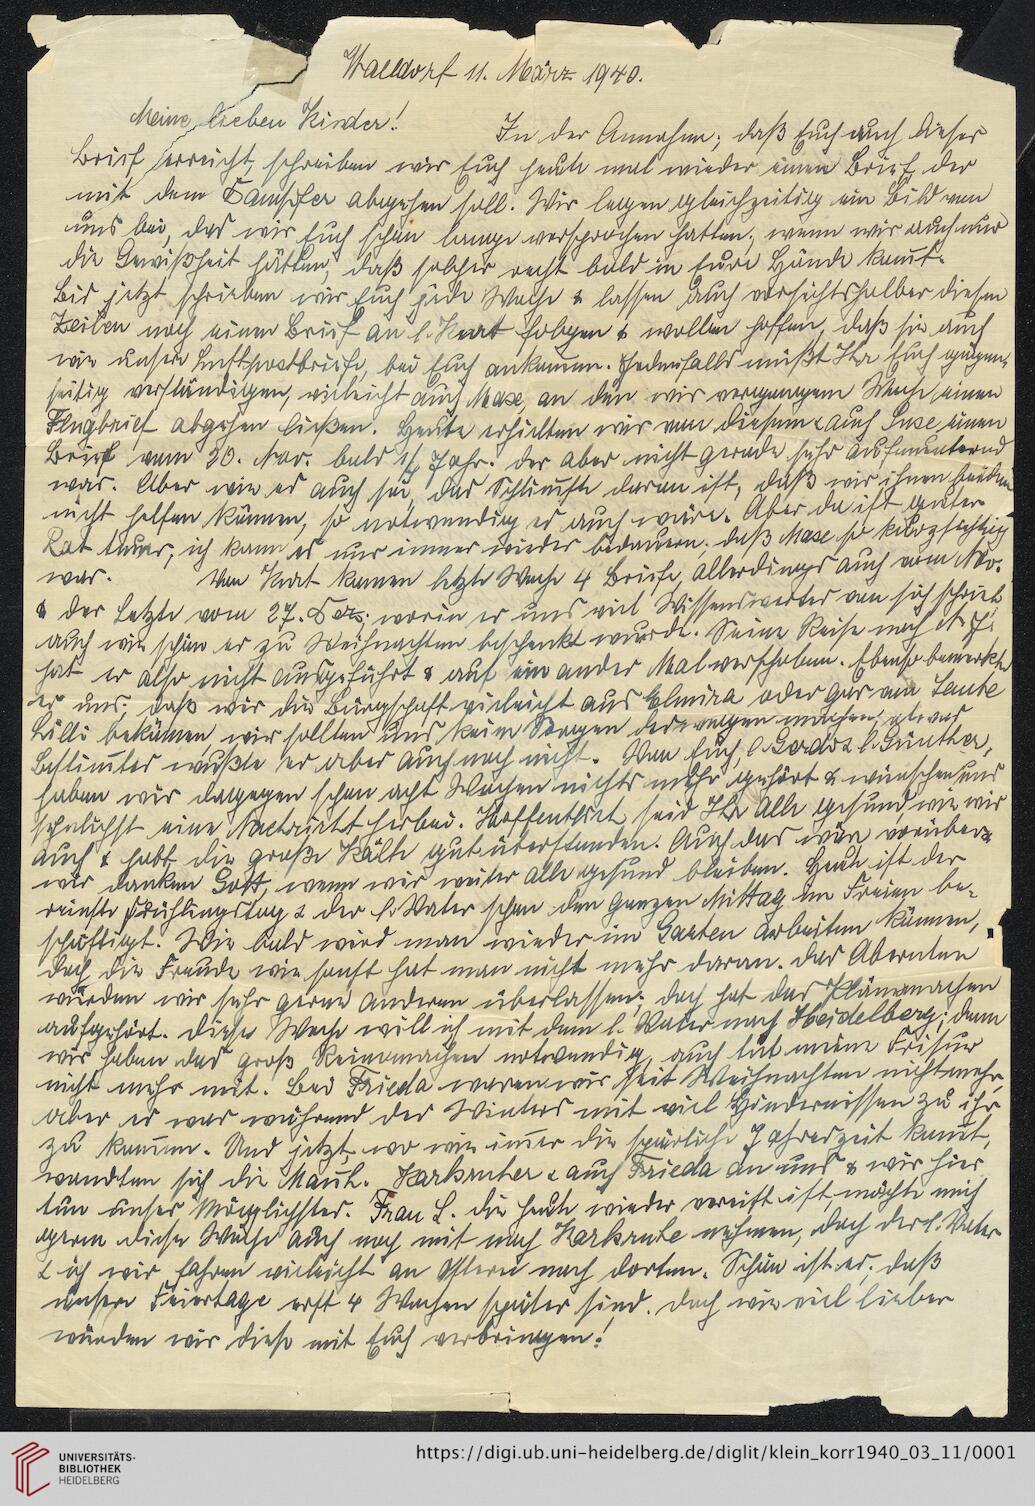 Walldorf 11. März 1940.
Meine lieben Kinder!
In der Annahme, daß Euch auch dieser
Brief erreicht schreiben wir Euch heute mal wieder einen Brief der
mit dem Dampfer abgehen soll. Wir legen gleichzeitig ein Bild von
uns bei, das wir Euch schon lange versprochen hatten; wenn wir auch nur
die Gewißheit hätten, daß solches recht bald in Eure Hände kommt.
Bis jetzt schrieben wir Euch jede Woche & lassen auch vorsichtshalber diesen
Zeilen noch einen Brief an l. Kurt folgen & wollen hoffen, daß sie auch
wie unsere Luftpostbriefe, bei Euch ankommen. Jedenfalls müßt Ihr Euch gegen-
seitig verständigen, vielleicht auch Max, an den wir vergangene Woche einen
Flugbrief abgehen ließen. Heute erhielten wir von diesem & auch Suse einen
Brief vom 30. Nov. bald ½ Jahr. der aber nicht gerade sehr aufmunternd
war. Aber wie es auch sei, das Schlimmste daran ist, daß wir ihnen beiden
nicht helfen können, so notwendig es auch wäre. Aber da ist guter
Rat teuer, ich kann es nur immer wieder bedauern, daß Max so kurzsichtig
war. Von Kurt kamen letzte Woche 4 Briefe, allerdings auch vom Nov.
& der letzte vom 27. Dez. worin er uns viel Wissenswertes von sich schrieb
auch wie schön er zu Weihnachten beschenkt wurde. Seine Reise nach N.J.
hat er also nicht ausgeführt & auf ein ander Mal verschoben. Ebenso bemerkte
er uns, daß wir die Bürgschaft vielleicht aus Elmira oder gar von Tante
Lilli bekämen, wir sollten uns keine Sorgen deswegen machen, etwas
Bestimmtes wußte er aber auch noch nicht. Von Euch, l. Gerda & l. Günther,
haben wir dagegen schon acht Wochen nichts mehr gehört & wünschen uns
sehnlichst eine Nachricht herbei. Hoffentlich seid Ihr alle gesund, wie wir
auch & habt die große Kälte gut überstanden. Auch das wäre vorüber &
wir danken Gott, wenn wir weiter alle gesund bleiben. Heute ist der
reinste Frühlingstag & der l. Vater schon den ganzen Mittag im Freien be-
schäftigt. Wie bald wird man wieder im Garten arbeiten können,
doch die Freude wie sonst hat man nicht mehr daran. Das Abernten
würden wir sehr gerne anderen überlassen; doch hat das Plänemachen
aufgehört. Diese Woche will ich mit dem l. Vater nach Heidelberg; denn
wir haben das groß Reinemachen notwendig, auch tut meine Frisur
nicht mehr mit. Bei Frieda waren wir seit Weihnachten nicht mehr,
aber es war während des Winters mit viel Hindernissen zu ihr
zu kommen. Und jetzt wo wie immer die spärliche Jahreszeit kommt,
wandten sich die Mannh. Karlsruher & auch Frieda an uns & wir hier
tun unser Möglichstes. Frau L. die heute wieder verreist ist, möchte mich
gern diese Woche auch noch mit nach Karlsruhe nehmen, doch der l. Vater
& ich wir fahren vielleicht an Ostern nach dorten. Schön ist es, daß
unsere Feiertage erst 4 Wochen später sind, doch wie viel lieber
würden wir diese mit Euch verbringen!
UNIVERSITÄTS-
BIBLIOTHEK
HEIDELBERG
https://digi.ub.uni-heidelberg.de/diglit/klein_korr1940_03_11/0001